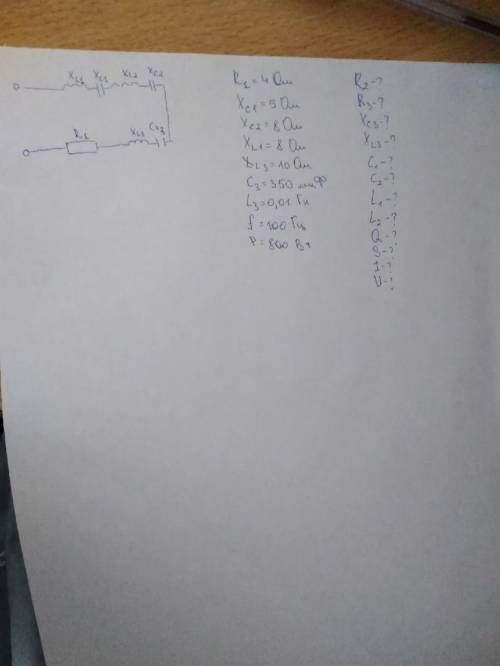 XL1 XC1 XL2 XC2
R1 XL3 C3
R1 = 4 Ом
XC1 = 5 Ом
XC2 = 8 Ом
XL1 = 8 Ом
XL3 = 10 Ом
C3 = 350 мкФ
L3 = 0,01 Гн
f = 100 Гц
P = 800 Вт
R2 - ?
R3 - ?
XC3 - ?
XL3 - ?
C1 - ?
C2 - ?
L1 - ?
L2 - ?
Q - ?
S - ?
I - ?
U - ?